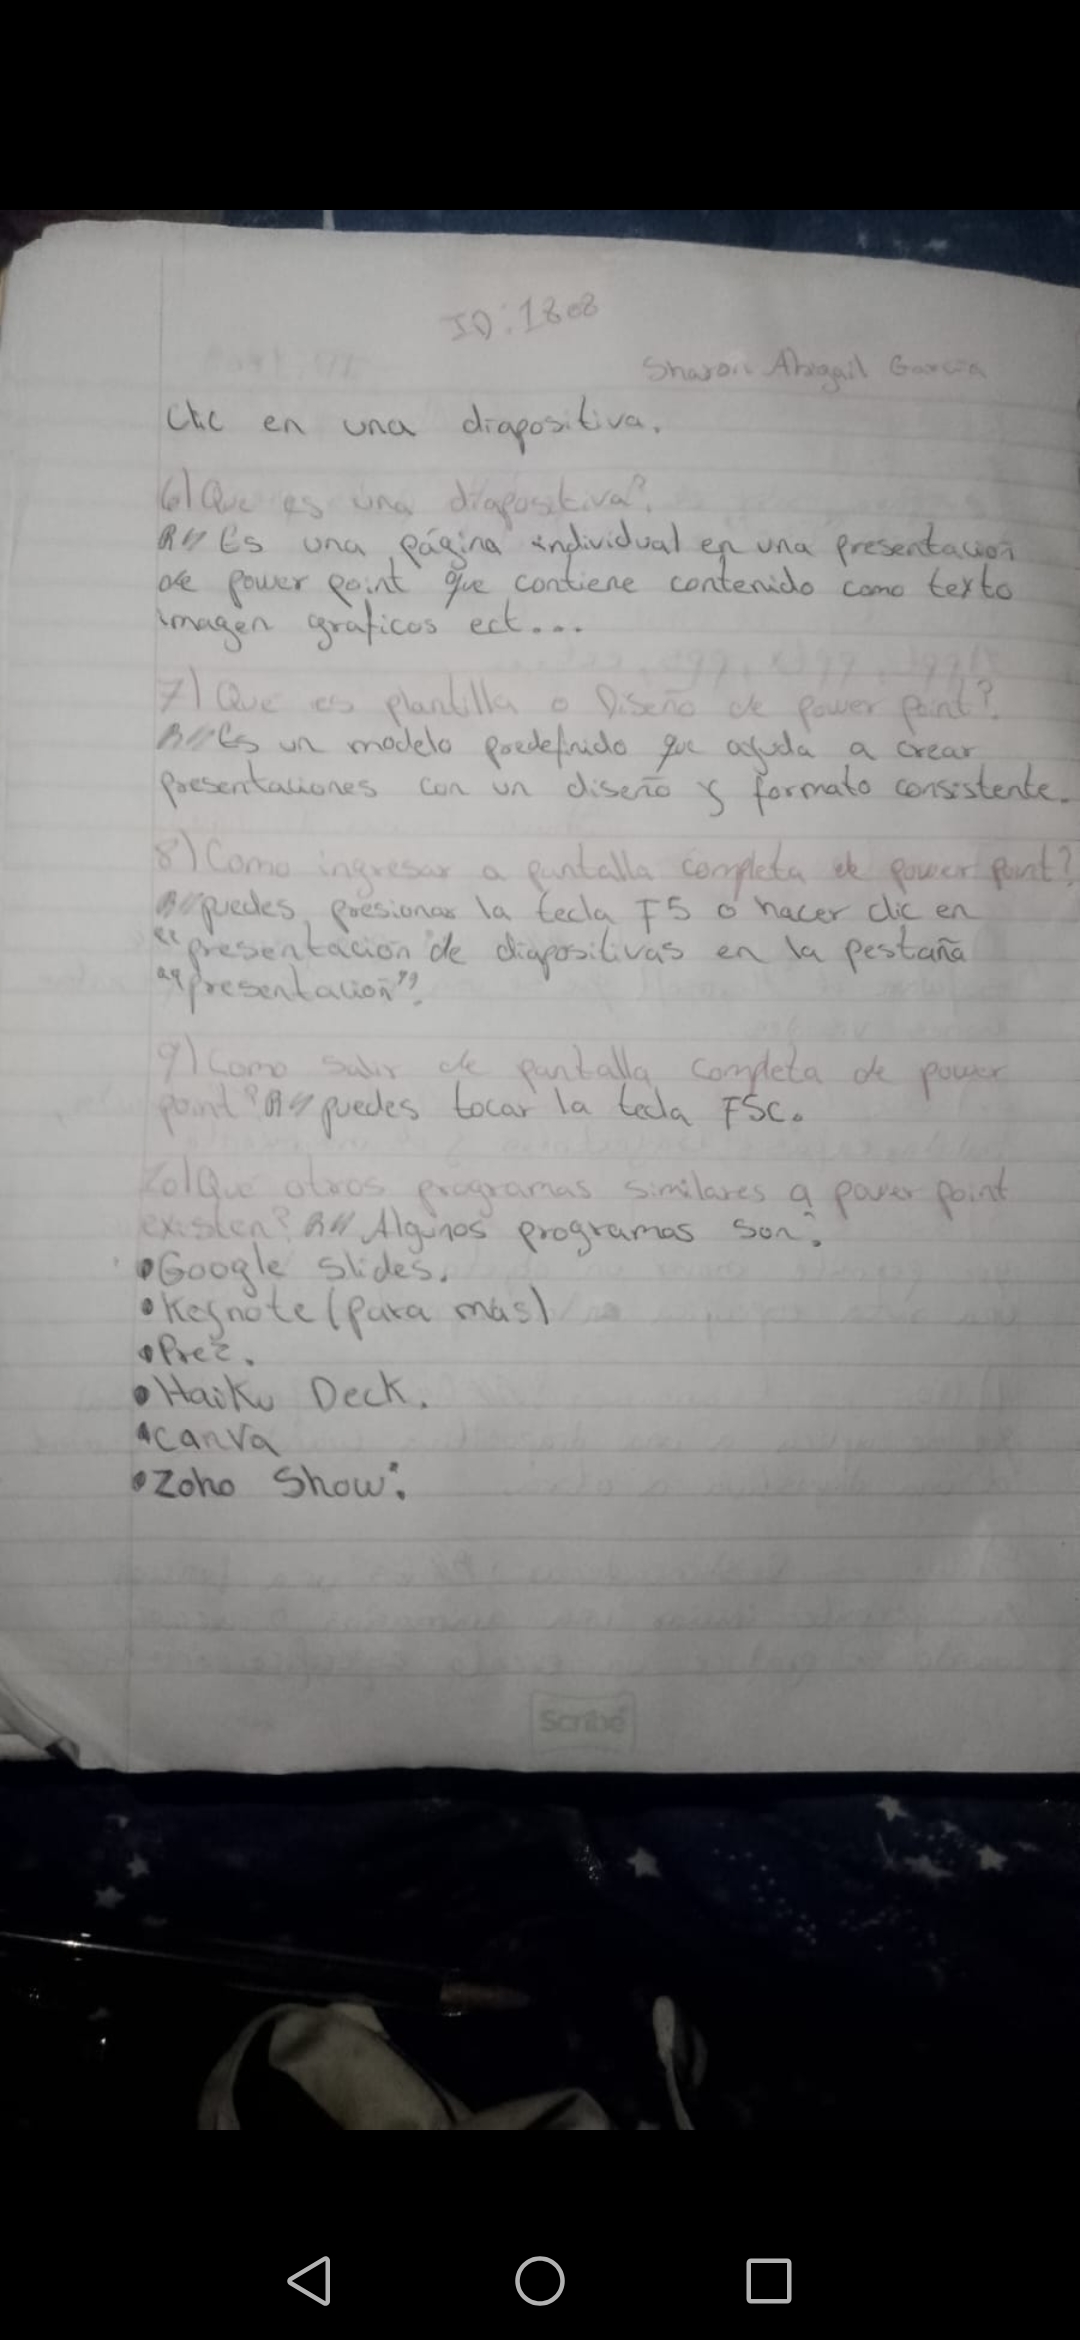 ID:1808
Sharon Abigail Garcia
Clic en una diapositiva.
6) Que es una diapositiva?.
R// Es una página individual en una presentacion
de power point que contiene contenido como texto
imagen graficos ect...
7) Que es plantilla o Diseño de power point?.
R// Es un modelo predefinido que ayuda a crear
presentaciones con un diseño y formato consistente.
8) Como ingresar a pantalla completa de power point?
R// puedes presionar la tecla F5 o hacer clic en
"presentacion de diapositivas en la pestaña
"presentacion".
9) Como salir de pantalla completa de power
point? R// puedes tocar la tecla ESC.
10) Que otros programas similares a power point
existen? R// Algunos programas son:
•Google Slides.
•Keynote (para mas)
•Prez.
•Haiku Deck.
•Canva
•Zoho Show:
Scribe